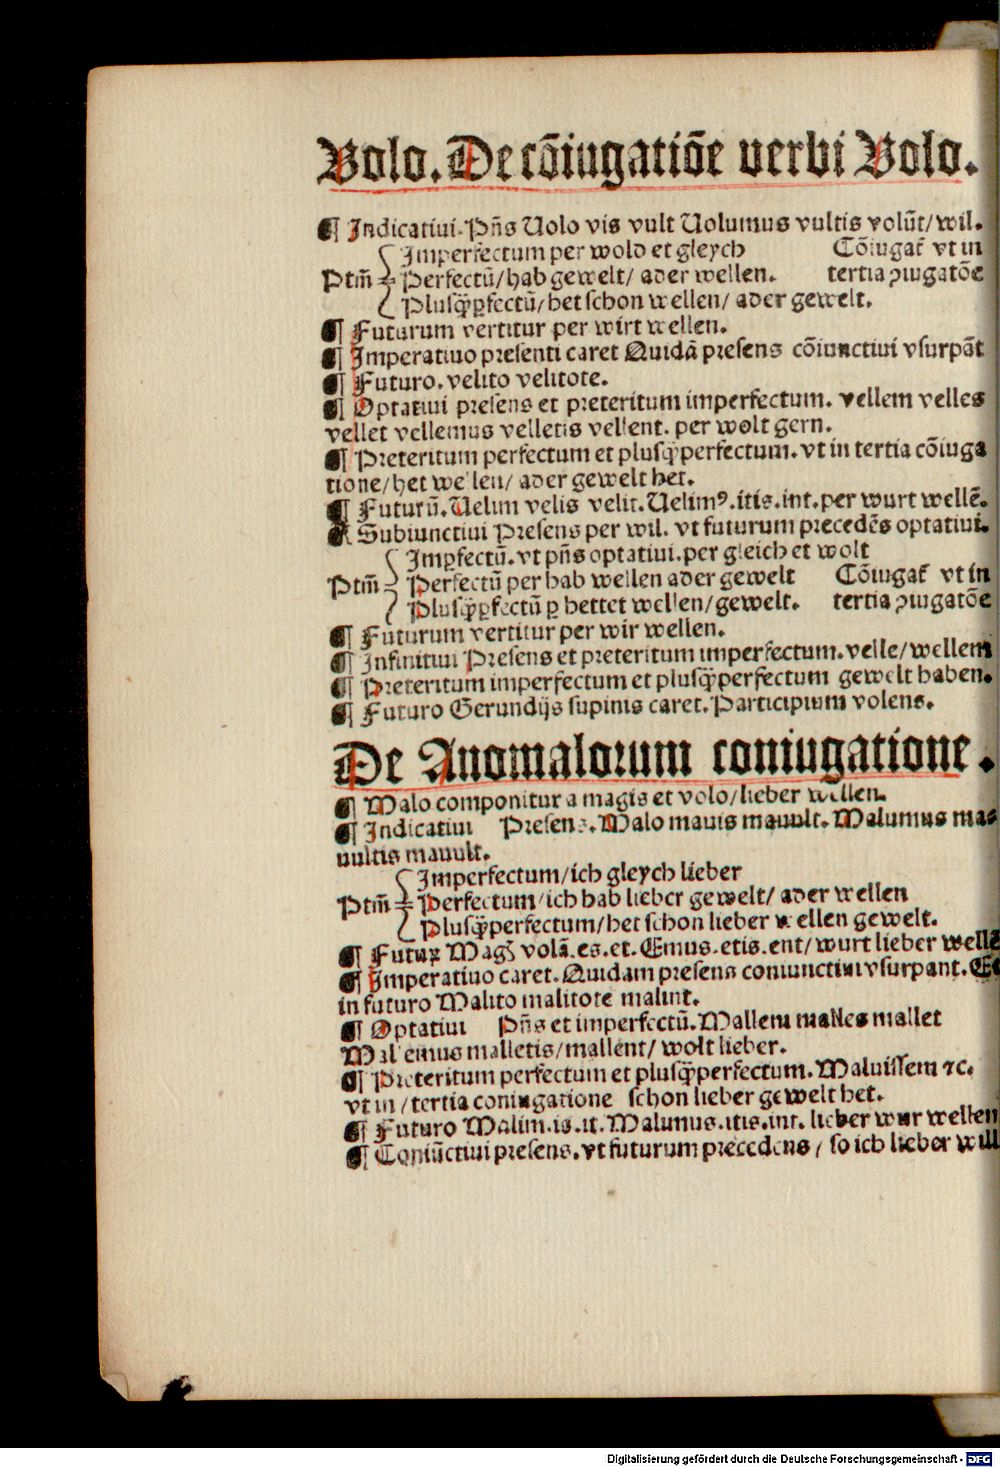 Volo. De cõiugatiõe verbi Volo.
¶ Indicatiui. Pñs Uolo vis vult Uolumus vultis volũt/ wil.
Imperfectum per wold et gleych Cõiugat̃ vt in
Ptm̃ Perfectũ/ hab gewelt/ ader wellen. tertia ɔiugatõe
Plusq̃ꝑfectũ/ het schon wellen/ ader gewelt.
¶ Futurum vertitur per wirt wellen.
¶ Imperatiuo presenti caret Quidã presens cõiunctiui vsurpãt
¶ Futuro. velito velitote.
¶ Optatiui presens et preteritum imperfectum. vellem velles
vellet vellemus velletis vellent. per wolt gern.
¶ Preteritum perfectum et plusq̃perfectum. vt in tertia cõiuga
tione/ het wellen/ ader gewelt het.
¶ Futurũ. Uelim velis velit. Uelimꝰ. itis. int. per wurt wellẽ.
¶ Subiunctiui Presens per wil. vt futurum precedẽs optatiui.
Imꝑfectũ. vt pñs optatiui. per gleich et wolt
Ptm̃ Perfectũ per hab wellen ader gewelt Cõiugat̃ vt in
Plusq̃ꝑfectũ ꝑ hettet wellen/ gewelt. tertia ɔiugatõe
¶ Futurum vertitur per wir wellen.
¶ Infinitiui Presens et preteritum imperfectum. velle/ wellem
¶ Preteritum imperfectum et plusq̃perfectum gewelt haben.
¶ Futuro Gerundijs supinis caret. Participium volens.
De Anomalorum coniugatione.
¶ Malo componitur a magis et volo/ lieber wellen.
¶ Indicatiui Presens. Malo mauis mauult. Malumus ma-
uultis mauult.
Imperfectum/ ich gleych lieber
Ptm̃ Perfectum/ ich hab lieber gewelt/ ader wellen
Plusq̃perfectum/ het schon lieber wellen gewelt.
¶ Futuꝝ Magꝭ volã. es. et. Emus. etis. ent/ wurt lieber wellẽ
¶ Imperatiuo caret. Quidam presens coniunctiui vsurpant. Et
in futuro Malito malitote malint.
¶ Optatiui Pñs et imperfectũ. Mallem malles mallet
Mallemus malletis/ mallent/ wolt lieber.
¶ Preteritum perfectum et plusq̃perfectum. Maluissem ⁊c.
vt in / tertia coniugatione schon lieber gewelt het.
¶ Futuro Malim. is. it. Malimus. itis. int. lieber wur wellen
¶ Coniũctiui presens. vt futurum precedens / so ich lieber will
Digitalisierung gefördert durch die Deutsche Forschungsgemeinschaft - DFG